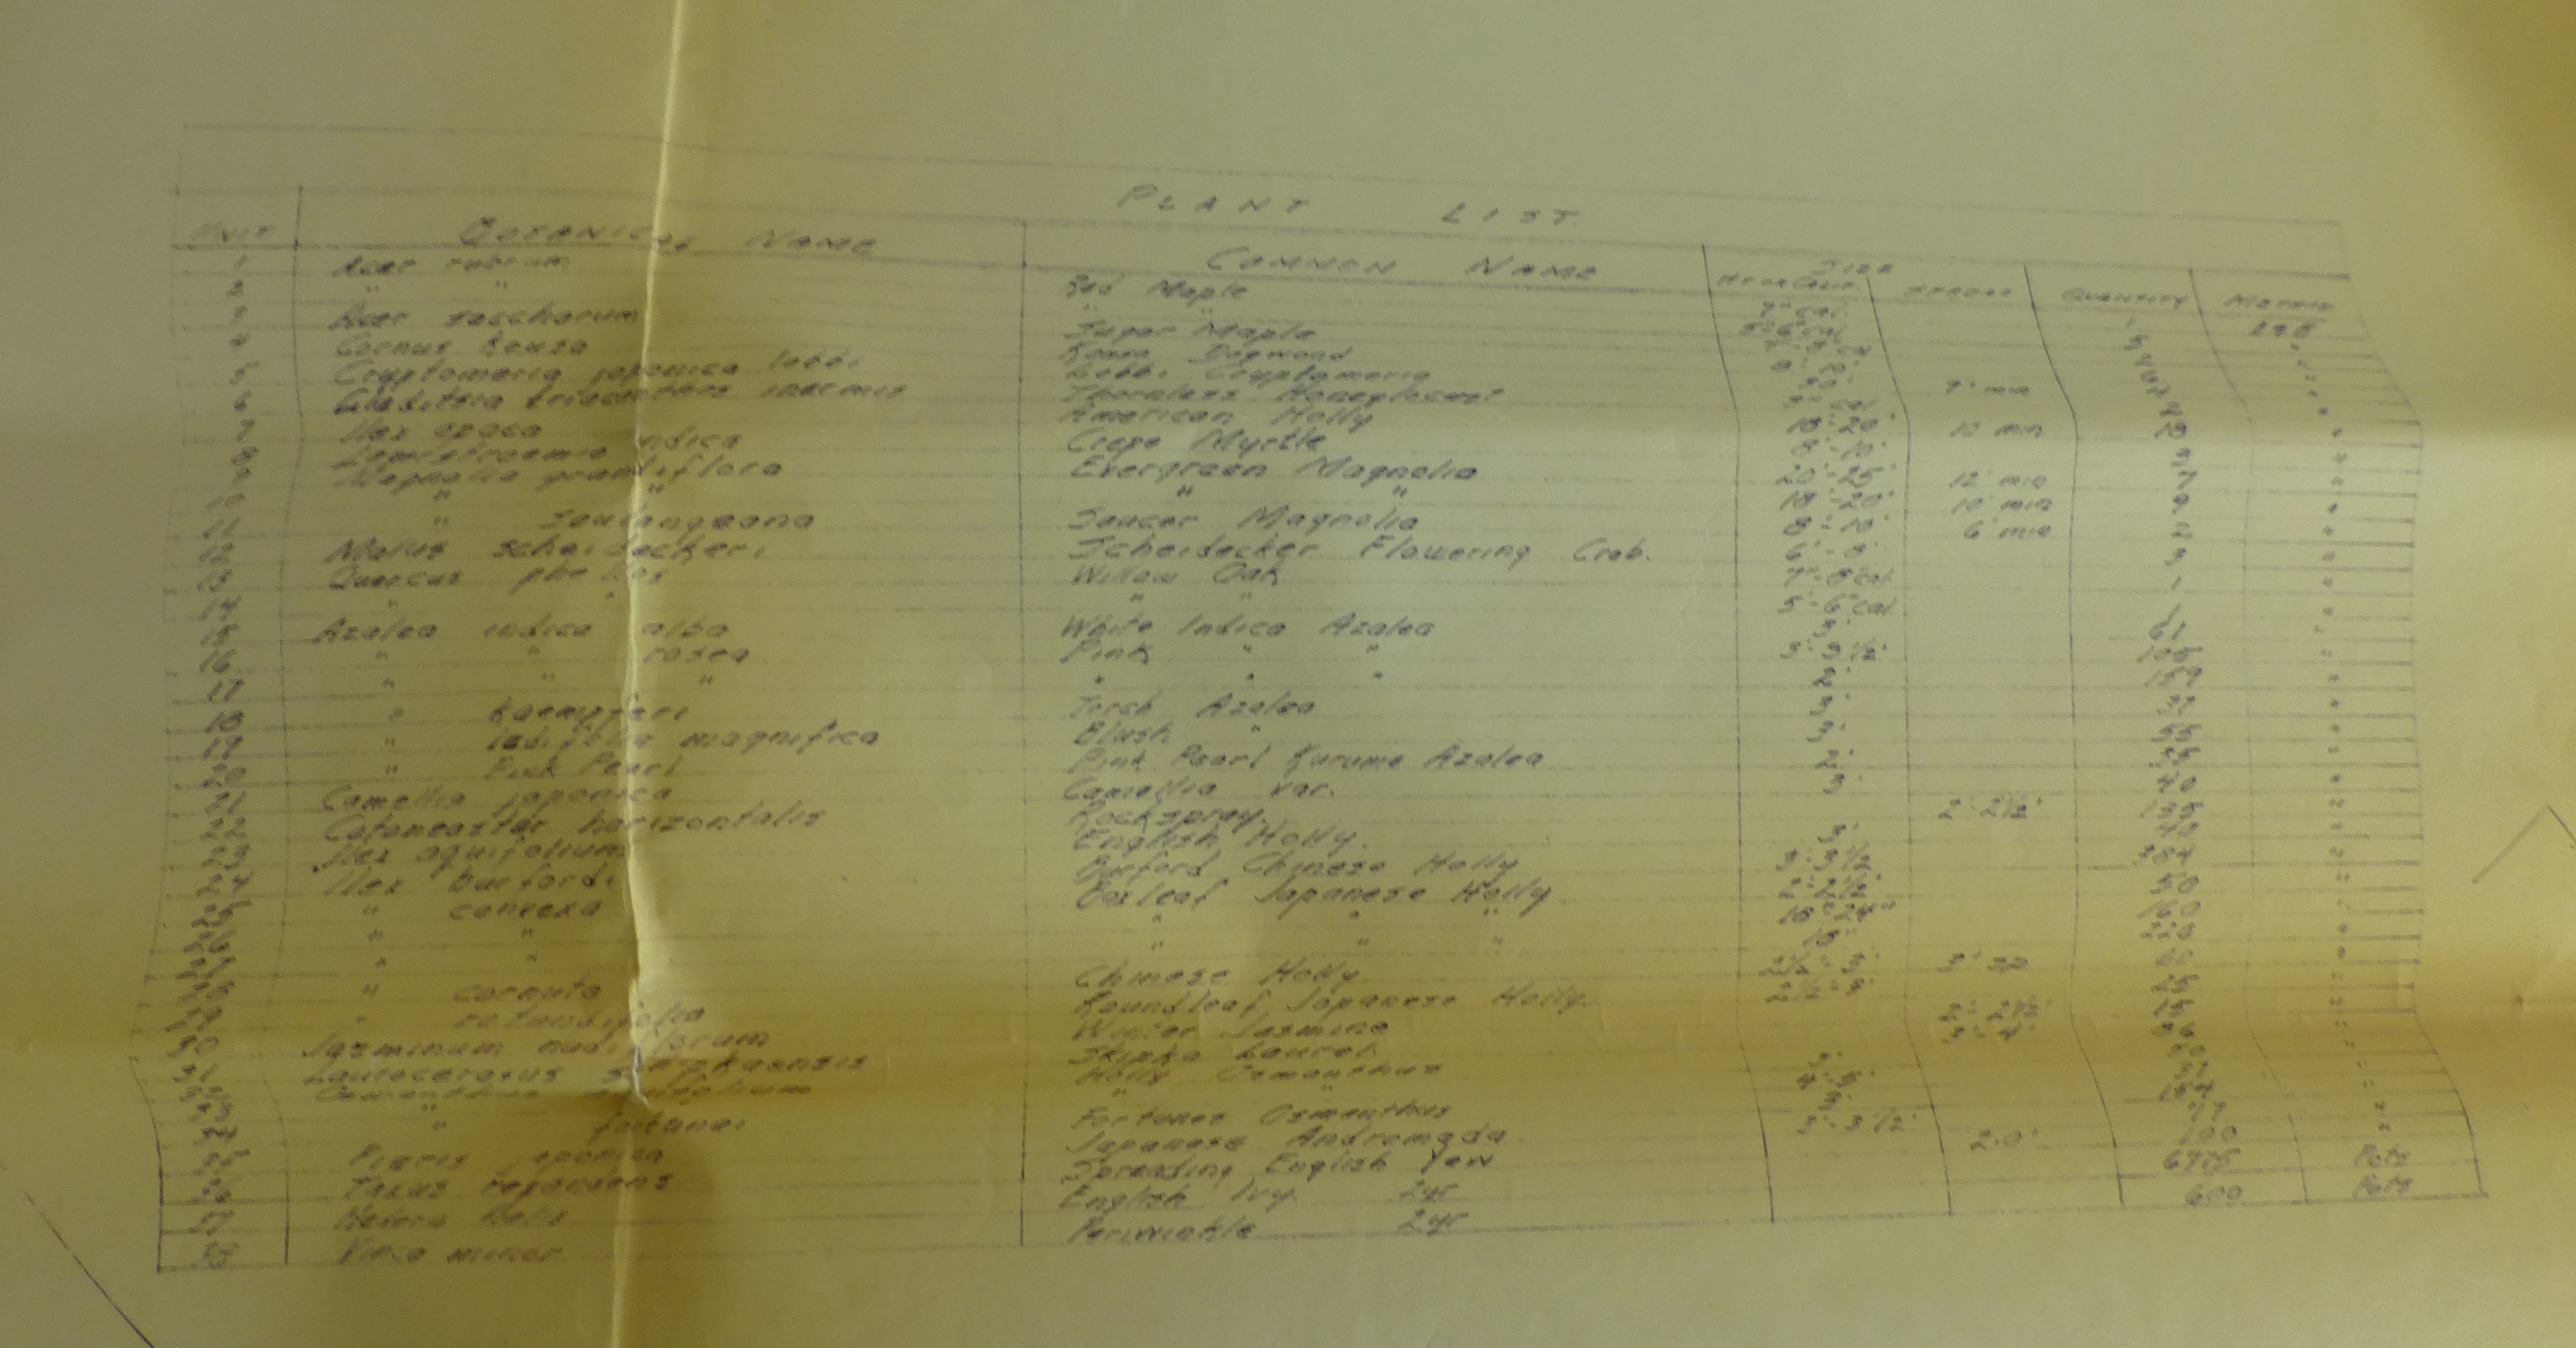 PLANT LIST
UNIT BOTANICAL NAME COMMON NAME SIZE
HT or Cal. SPREAD QUANTITY
1 Acer rubrum Red Maple 7" cal.
2 " " " " 5"-6" cal
3 Acer saccharum Sugar Maple
4 Cornus Kousa Kousa Dogwood 8'-10'
5 Cryptomeria japonica lobbi Lobbi Cryptomeria 20' 7' min
6 Gleditsia triacanthos inermis Thornless Honeylocust
7 Ilex opaca American Holly 18'-20' 10 min 18 "
8 Lagerstroemia indica Crepe Myrtle 8'-10' "
9 Magnolia grandiflora Evergreen Magnolia 20'-25' 12' min 7 "
10 " " " " 18'-20' 10' min 9 "
11 " Soulangeana Saucer Magnolia 8'-10' 6' min 2 "
12 Malus scheideckeri Scheidecker Flowering Crab. 6'-8' 3 "
13 Quercus phellos Willow Oak 7"-8" cal. 1 "
14 " " " " 5"-6" cal 1 "
15 Azalea indica alba White Indica Azalea 3' 61 "
16 " " rosea Pink " " 3'-3 1/2' 105 "
17 " " " " " " 2' 159 "
18 " Kaempferi Torch Azalea 3' 37 "
19 " ledifolia magnifica Blush " 3' 55 "
20 " Pink Pearl Pink Pearl Kurume Azalea 2' 25 "
21 Camellia japonica Camellia var. 3' 40 "
22 Cotoneaster horizontalis Rockspray. 2'-2 1/2' 135 "
23 Ilex aquifolium English Holly. 3' 40 "
24 Ilex burfordi Burford Chinese Holly 3'-3 1/2' 384 "
25 " convexa Boxleaf Japanese Holly 2'-2 1/2' 50 "
26 " " " " " 18"-24" 160 "
27 " " " " " 18" "
28 " cornuta Chinese Holly 2 1/2'-3' 3' sp "
29 " rotundifolia Roundleaf Japanese Holly. 2 1/2'-3' 25 "
30 Jasminum nudiflorum Winter Jasmine 2'-2 1/2' 15 "
31 Laurocerasus schipkaensis Skipka Laurel 3'-4' "
32 Osmanthus Holly Osmanthus 3'
33 " " 4'-5' 154
34 " fortunei Fortunes Osmanthus 3'
35 Pieris japonica Japanese Andromeda 3'-3 1/2' 100 "
36 Taxus repandens Spreading English Yew 2'.0'
37 Hedera Helix English Ivy 2yr Pots
38 Vinca minor Periwinkle 2yr 600 Pots